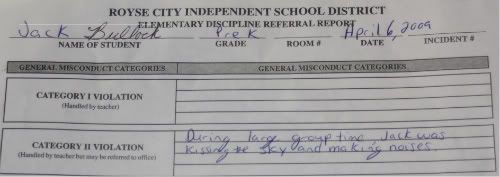 ROYSE CITY INDEPENDENT SCHOOL DISTRICT
ELEMENTARY DISCIPLINE REFERRAL REPORT
Jack Bullock Pre K April 6, 2009
NAME OF STUDENT GRADE ROOM # DATE INCIDENT #
GENERAL MISCONDUCT CATEGORIES GENERAL MISCONDUCT CATEGORIES
CATEGORY I VIOLATION
(Handled by teacher)
During large group time, Jack was
CATEGORY II VIOLATION kissing the sky and making noises.
(Handled by teacher but may be referred to office)